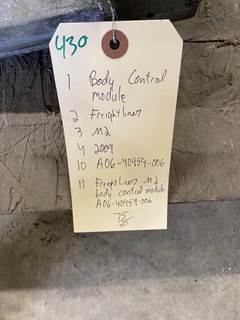 430
1 Body Control
module
2 Freightliner
3 M2
4 2009
10 A06-40959-006
11 Freightliner M2
body control module
A06-40959-006